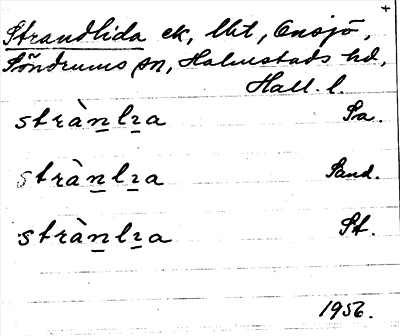 +
Strandlida ek, lht, Onsjö,
Söndrums sn, Halmstads hd,
Hall. l.
stràn̲lɿ̲a Sa.
stràn̲lɿ̲a Sand.
stràn̲lɿ̲a St.
1956.